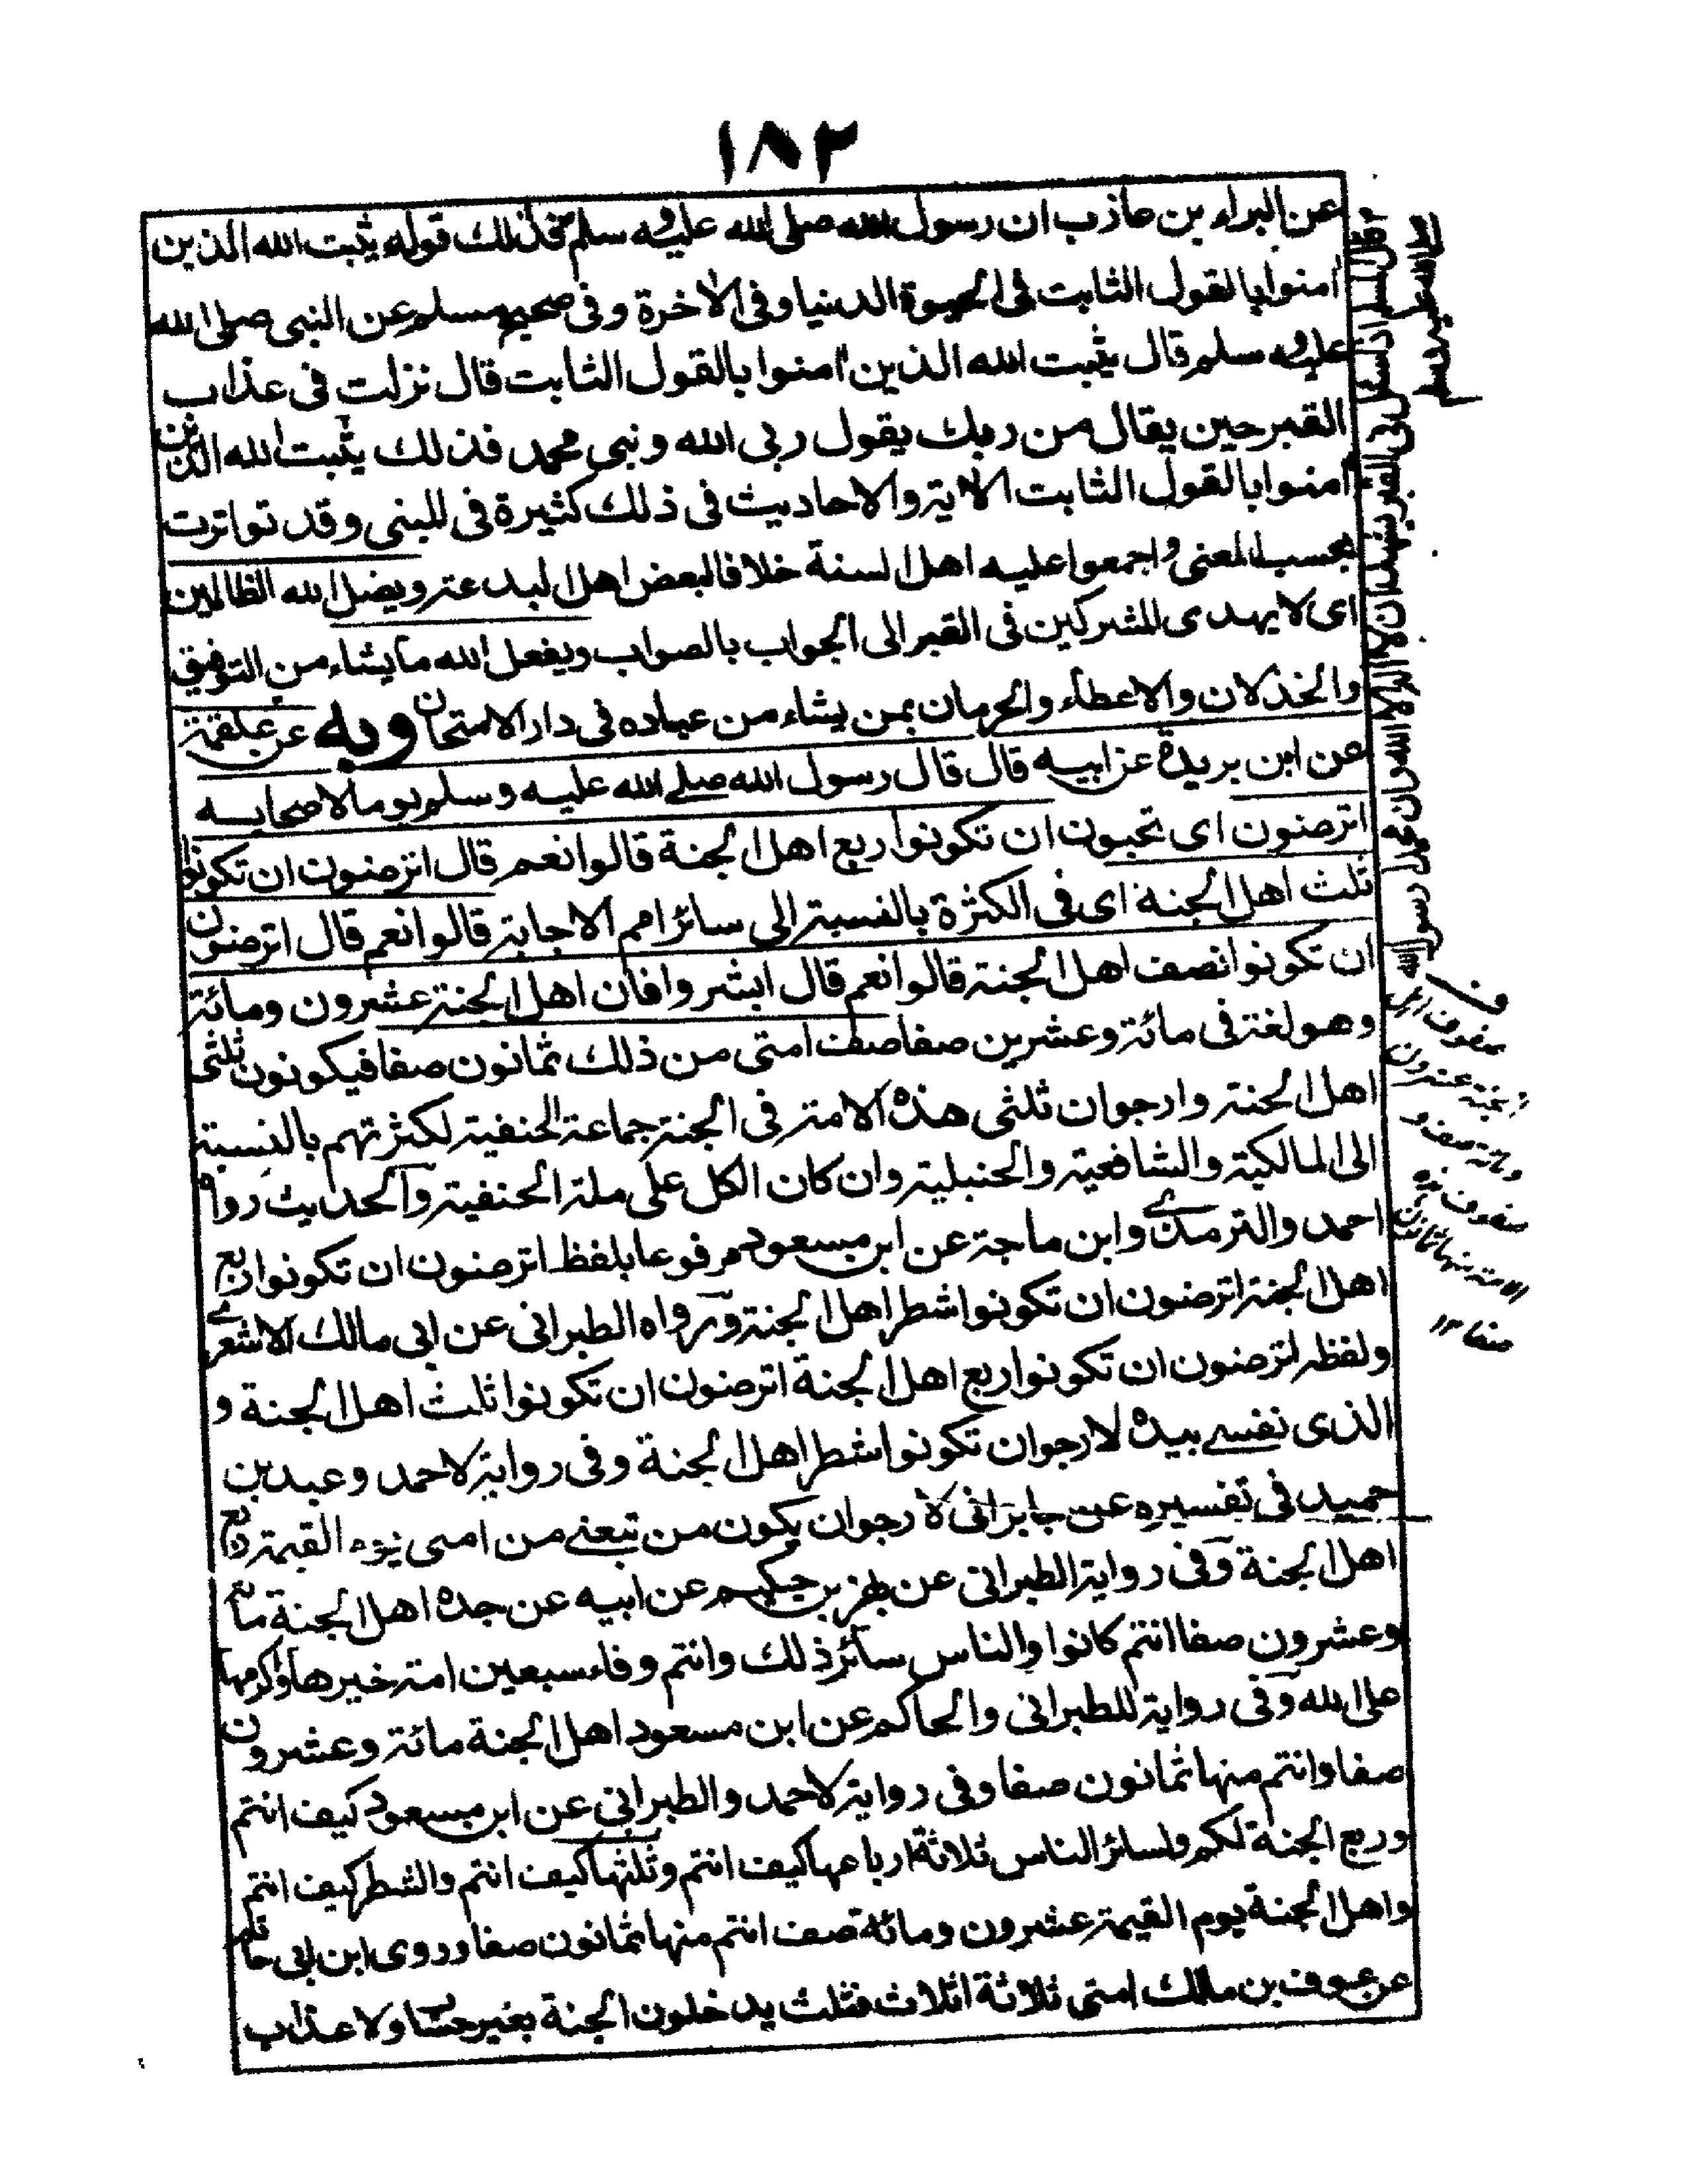 ١٨٢
عن البراء بن عازب ان رسول الله صلى الله عليه وسلم فذلك قوله يثبت الله الذين
امنوا بالقول الثابت فى الحيوة الدنيا وفى الاخرة وفى صحيح مسلم عن النبى صلى الله
عليه وسلم قال يثبت الله الذين امنوا بالقول الثابت قال نزلت فى عذاب
القبر حين يقال من ربك يقول ربى الله ونبى محمد فذلك يثبت الله الذين
امنوا بالقول الثابت الاية والاحاديث فى ذلك كثيرة فى المبنى وقد تواترت
بحسب المعنى واجمعوا عليه اهل السنة خلافا لبعض اهل البدعة ويضل الله الظالمين
اى لا يهدى المشركين فى القبر الى الجواب بالصواب ويفعل الله ما يشاء من التوفيق
والخذلان والاعطاء والحرمان بمن يشاء من عباده فى دار الامتحان وبه عن علقمة
عن ابن بريدة عن ابيه قال قال رسول الله صلے الله عليه وسلم يوما لاصحابه
اترضون اى تحبون ان تكونوا ربع اهل الجنة قالوا نعم قال اترضون ان تكونوا
ثلث اهل الجنة اى فى الكثرة بالنسبة الى سائر امم الاجابة قالوا نعم قال اترضون
ان تكونوا نصف اهل الجنة قالوا نعم قال ابشروا فان اهل الجنة عشرون ومائة
وهو لغة فى مائة وعشرين صفا صف امتى من ذلك ثمانون صفا فيكونون ثلثى
اهل الجنة وارجوان ثلثى هذه الامة فى الجنة جماعة الحنفية لكثرتهم بالنسبة
الى المالكية والشافعية والحنبلية وان كان الكل على ملة الحنفية والحديث رواه
احمد والترمذے وابن ماجة عن ابن مسعود مرفوعا بلفظ اترضون ان تكونوا ربع
اهل الجنة اترضون ان تكونوا شطر اهل الجنة ورواه الطبرانى عن ابى مالك الاشعرے
ولفظه اترضون ان تكونوا ربع اهل الجنة اترضون ان تكونوا ثلث اهل الجنة و
الذى نفسے بيده لارجوان تكونوا شطر اهل الجنة وفى رواية لاحمد وعبد بن
حميد فى تفسيره عن جابر انى لارجوان يكون من تبعنے من امتى يوم القيمة ربع
اهل الجنة وفى رواية الطبرانى عن بهز بن حكيم عن ابيه عن جده اهل الجنة مائة
وعشرون صفا انتم كانوا والناس سائر ذلك وانتم وفاء سبعين امة خيرها واكرمها
على الله وفى رواية للطبرانى والحاكم عن ابن مسعود اهل الجنة مائة وعشرون
صفا وانتم منها ثمانون صفا وفى رواية لاحمد والطبرانى عن ابن مسعود كيف انتم
وربع الجنة لكم ولسائر الناس ثلاثة ارباعها كيف انتم وثلثها كيف انتم والشطر كيف انتم
واهل الجنة يوم القيمة عشرون ومائة صف انتم منها ثمانون صفا وروى ابن ابى حاتم
عن عوف بن مالك امتى ثلاثة اثلاث فثلث يدخلون الجنة بغير حساب ولا عذاب
وقال المسلم اذا سئل فى القبر يشهد ان لا اله الا الله وان محمدا رسول الله
صلى الله عليه وسلم
صفوف اهل
الجنة عشرون
ومائة صف و
صفوف هذه
الامة منها ثمانون
صفا ١٢